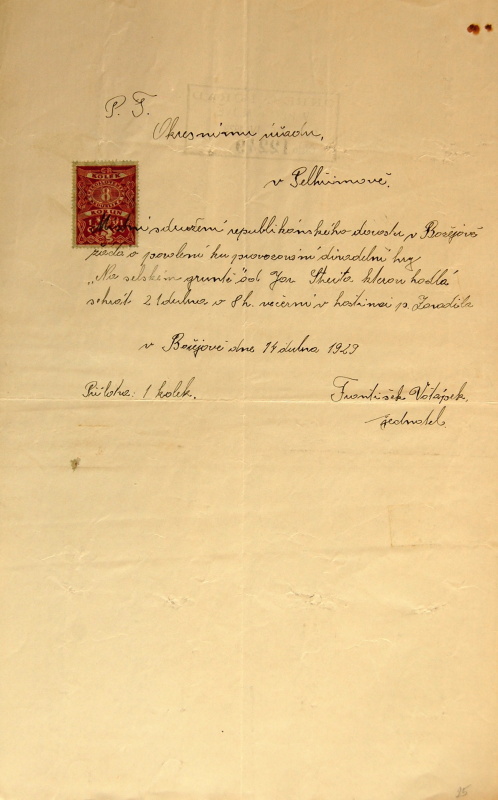 P. T.
Okresnímu úřadu,
v Pelhřimově.
KOLEK
8
KORUN
Místní sdružení republikánského dorostu v Božejově
žádá o povolení ku provozování divadelní hry
„Na selském gruntě" od Jar. kterou hodlá
sehrát 21 dubna o 8 h. večerní v hostinci p. Zavadila
v Božejově dne 14 dubna 1929
Příloha: 1 kolek.
František Votápek.
jednatel.